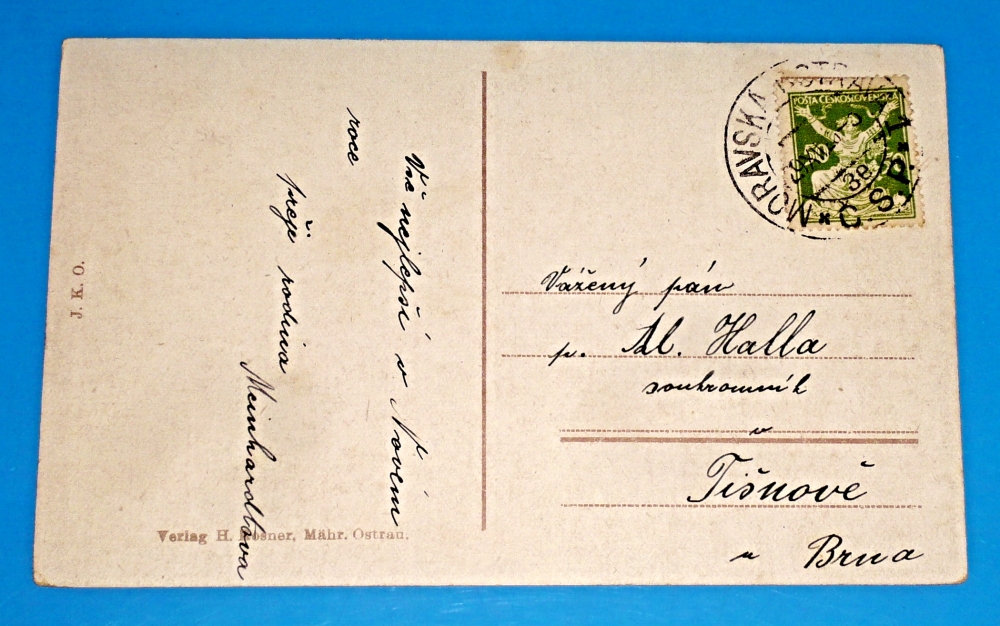 Vše nejlepší v Novém
roce
přeje rodina
Meinhardtova
J. K. O.
Verlag H. Rosner, Mähr. Ostrau.
POŠTA ČESKOSLOVENSKÁ
MORAVSKÁ OSTRAVA
Č.S.P.
Vážený pán
p. Al. Halla
soukromník
v
Tišnově
u Brna